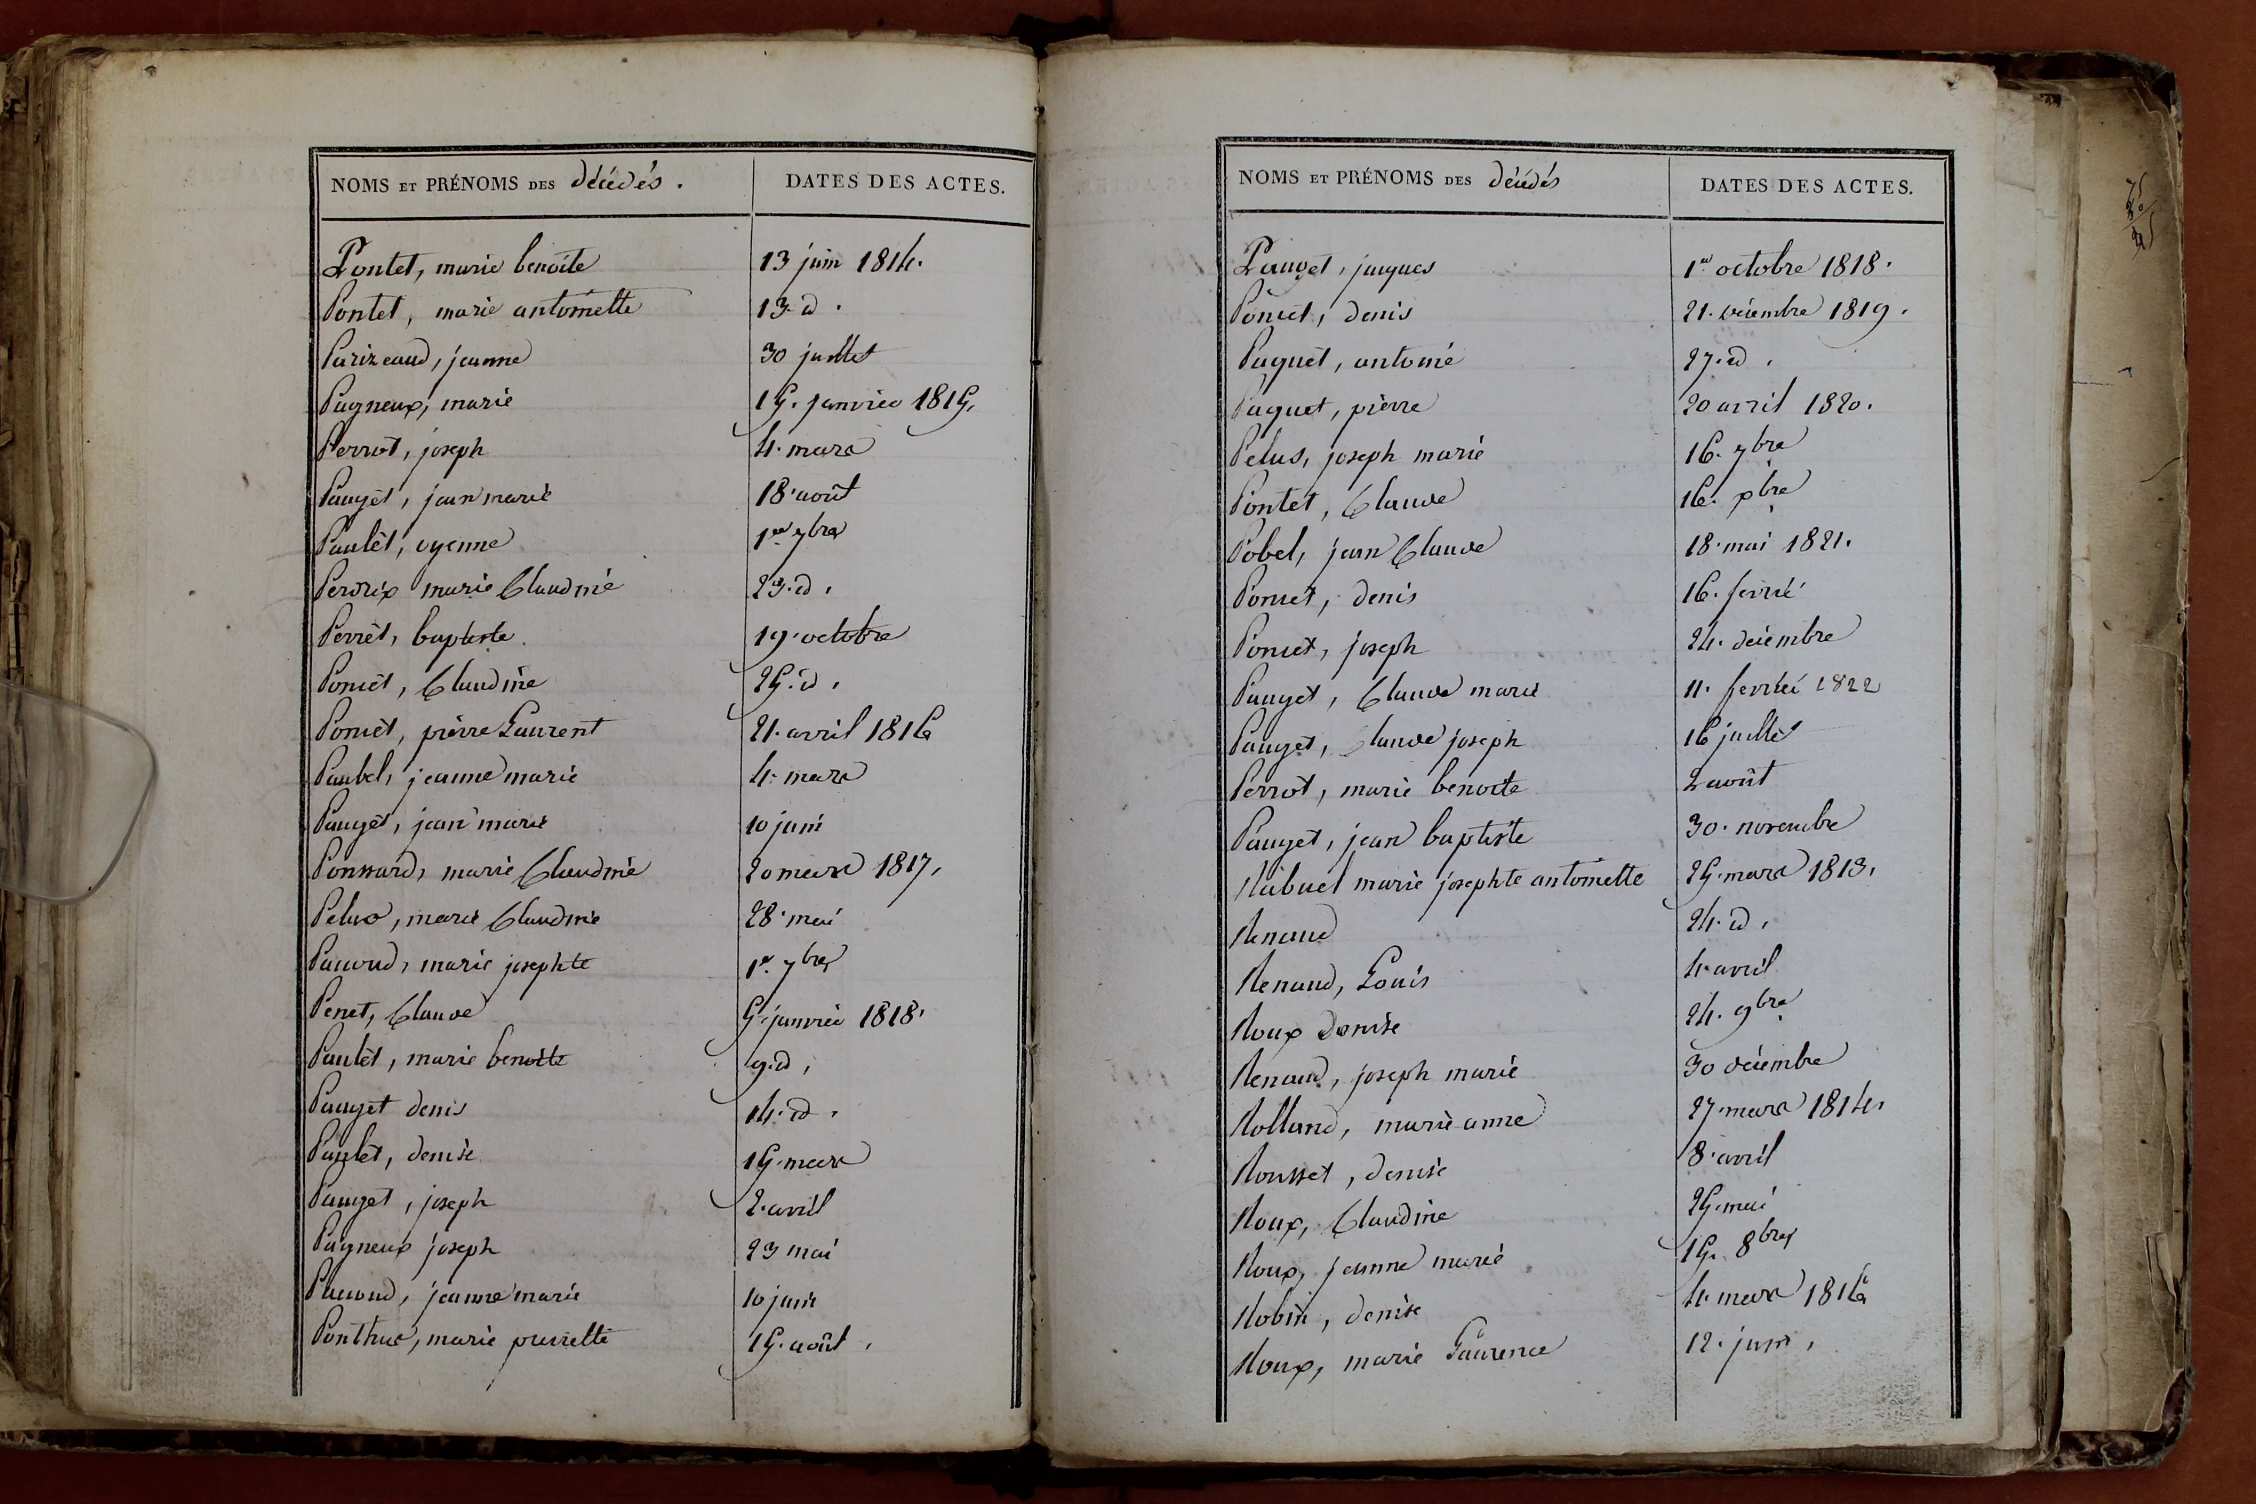 NOMS ET PRÉNOMS DES décédés. DATES DES ACTES.
Pontet, marie benoite 13 juin 1814.
Pontet, marie antoinette 13. d.
Parizeaud, jeanne 30 juillet
Pagneux, marie 15. janvier 1815.
Perrot, joseph 4. mars
Pauget, jean marie 18. août
Paulet, oyenne 1er 7bre
Perdrix marie Claudine 29. d.
Perret, baptiste 19. octobre
Poncet, Claudine 25. d.
Poncet, pierre Laurent 21. avril 1816
Paubel, jeanne marie 4. mars
Pauget, jean marie 10 juin
Ponsard, marie Claudine 20 mars 1817.
Pelus, marie Claudine 28. mai
Pacoud, marie josephte 1er 7bre
Penet, Claude 5. janvier 1818.
Paulet, marie benoite 9. d.
Pauget denis 14. d.
Paulet, denise 15. mars
Pauget, joseph 2. avril
Pagneux joseph 23 mai
Pacoud, jeanne marie 10 juin
Ponthus, marie pierrette 15. août.
NOMS ET PRÉNOMS DES décédés DATES DES ACTES.
Pauget, jacques 1er octobre 1818.
Poncet, denis 21. décembre 1819.
Paquet, antoine 27. d.
Paquet, pierre 20 avril 1820.
Pelus, joseph marie 16. 7bre
Pontet, Claude 16. xbre
Pobel, jean Claude 18. mai 1821.
Poncet, denis 16. fevrier
Poncet, joseph 24. decembre
Pauget, Claude marie 11. fevrier 1822
Pauget, Claude joseph 16 juillet
Perrot, marie benoite 2 août
Pauget, jean baptiste 30. novembre
Raibuel marie josephte antoinette 25. mars 1813.
Renaud 24. d.
Renaud, Louis 4. avril
Roux Denise 24. 9bre
Renaud, joseph marie 30 décembre
Rolland, marie anne 27. mars 1814.
Rousset, denise 8. avril
Roux, Claudine 25. mai
Roux, jeanne marie 15. 8bre
Robin, denise 4. mars 1816
Roux, marie Laurence 12. juin.